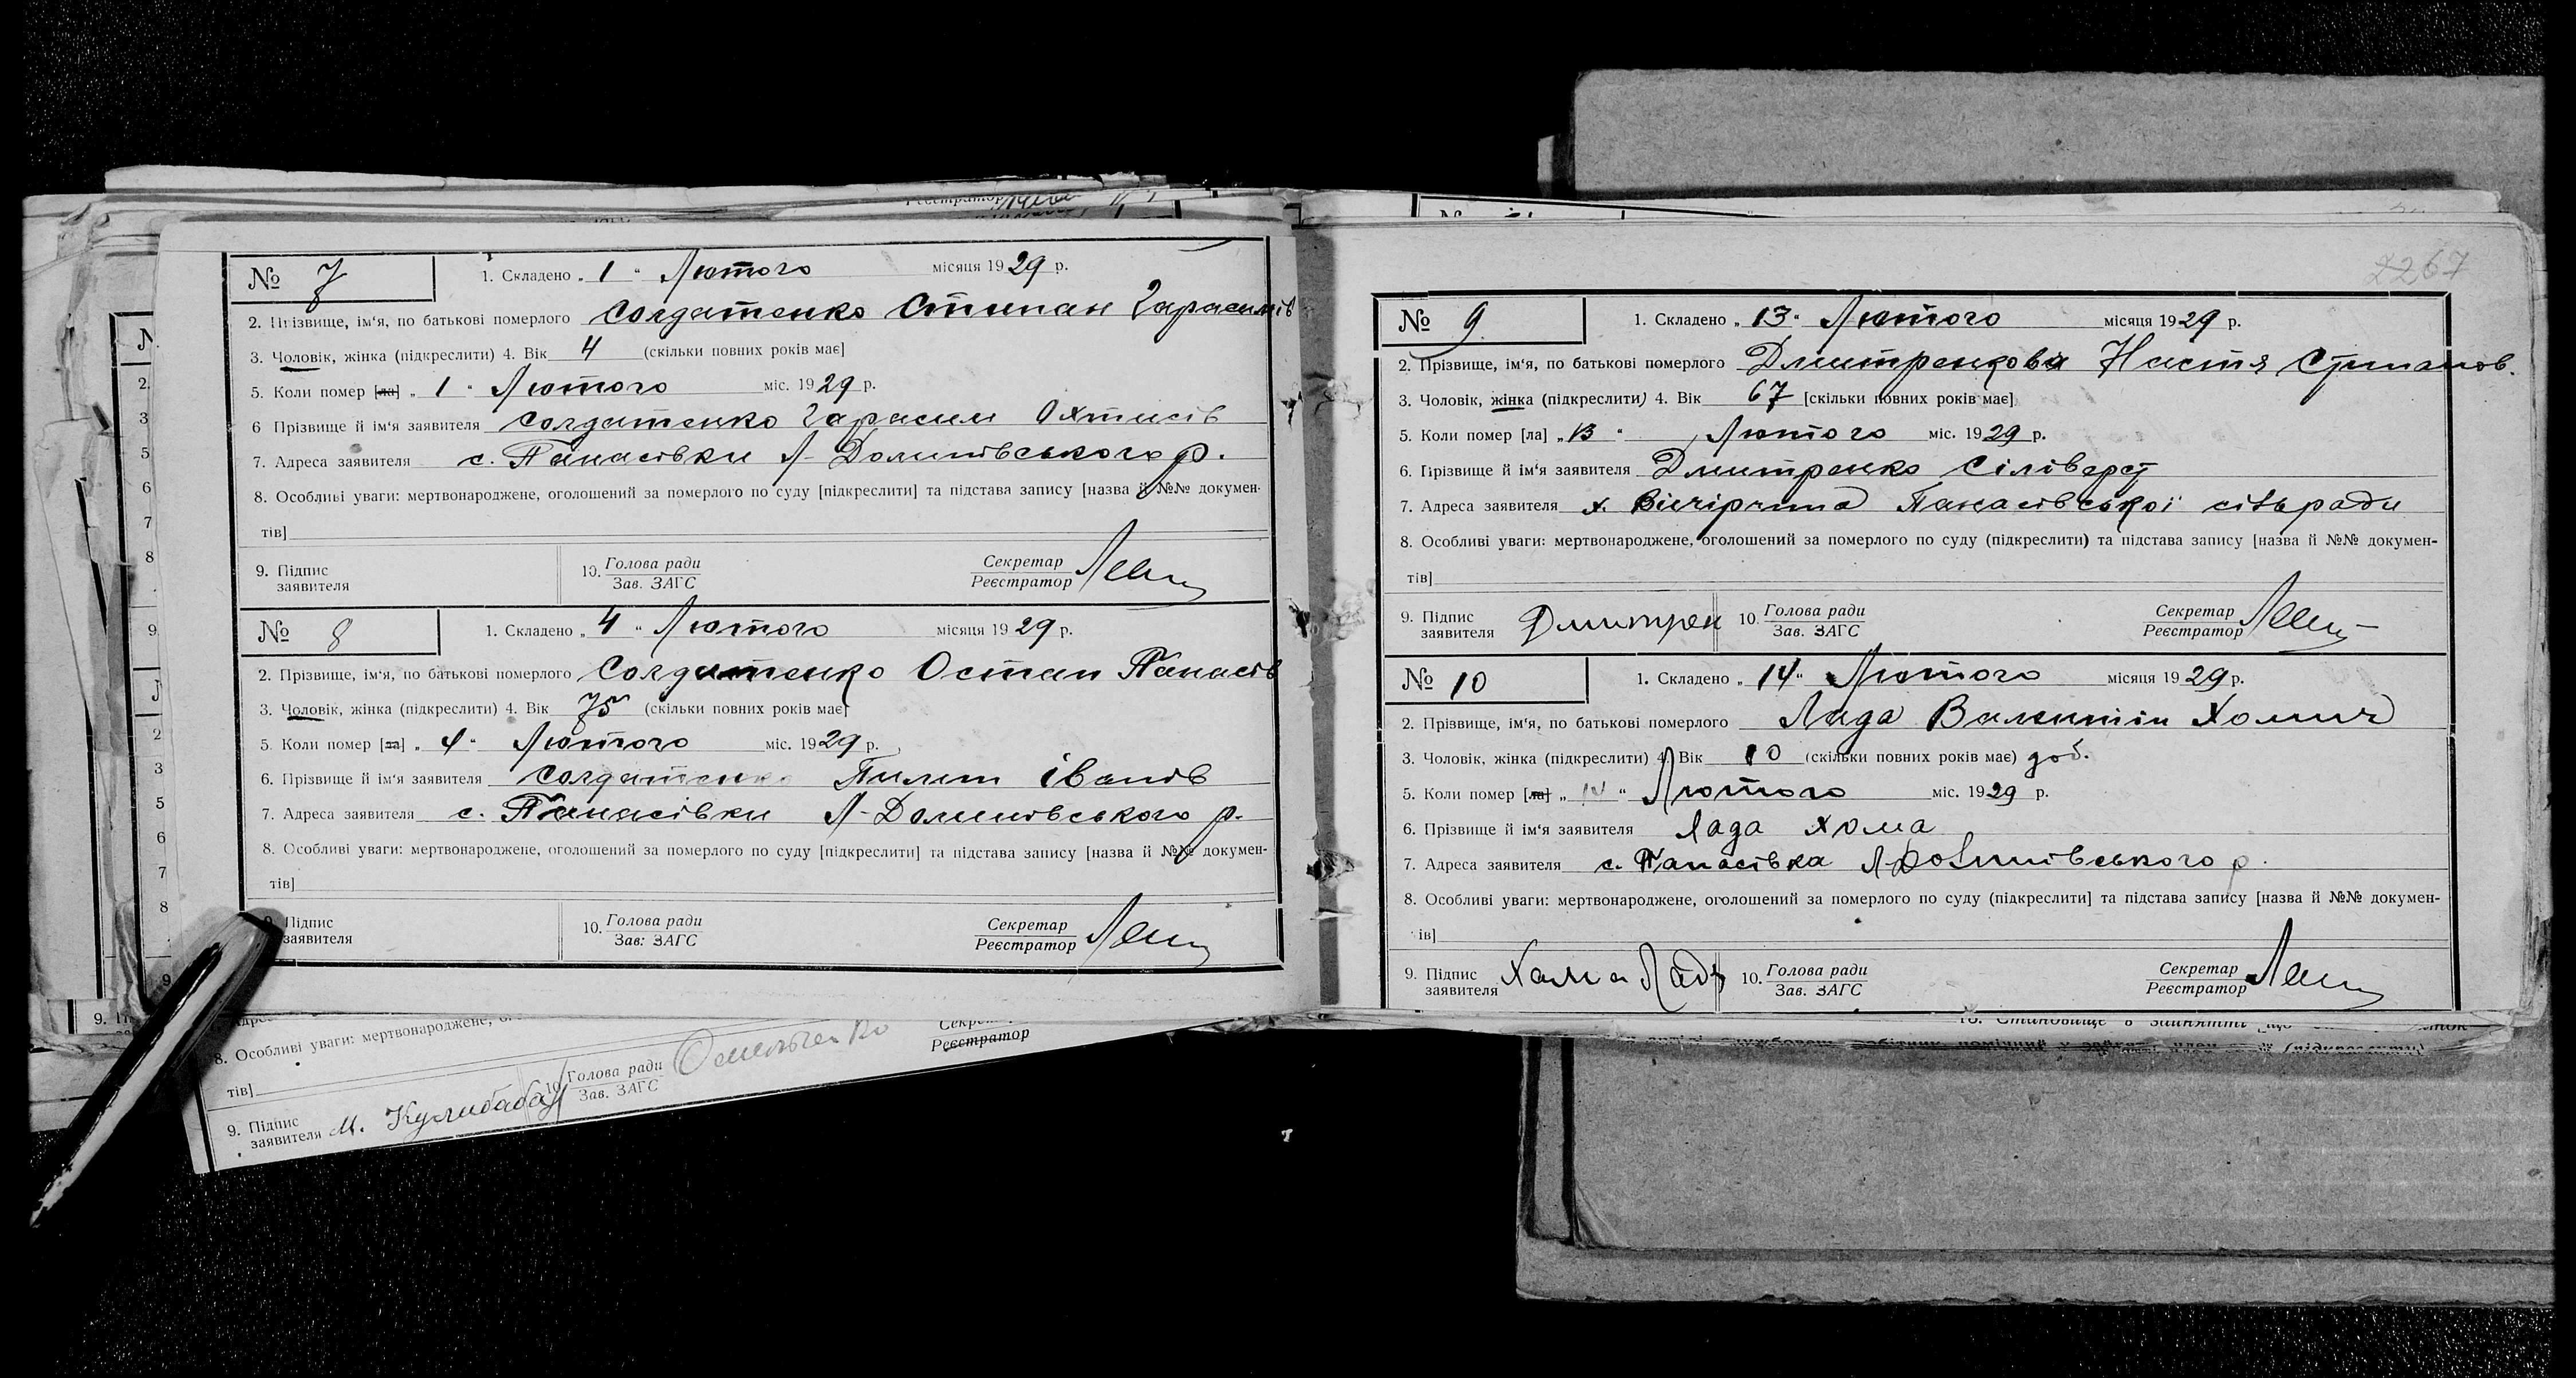 № 7 1. Складено „ 1 “ Лютого місяця 1929 р.
2. Прізвище, ім‘я, по батькові померлого Солдатенко Степан Гарасимів
3. Чоловік, жінка (підкреслити) 4. Вік 4 (скільки повних років має]
5. Коли помер [ла] „ 1 “ Лютого міс. 1929 р.
6 Прізвище й ім‘я заявителя Солдатенко Гарасим
7. Адреса заявителя с. Панасівки Л-Долинівського р.
8. Особливі уваги: мертвонароджене, оголошений за померлого по суду [підкреслити] та підстава запису [назва й №№ докумен-
тів]
9. Підпис заявителя 10. Голова ради Зав. ЗАГС Секретар Реєстратор
№ 8 1. Складено „ 4 “ Лютого місяця 1929 р.
2. Прізвище, ім‘я, по батькові померлого Солдатенко Остап Панасів
3. Чоловік, жінка (підкреслити) 4. Вік 75 (скільки повних років має]
5. Коли помер [ла] „ 4 “ Лютого міс. 1929 р.
6. Прізвище й ім‘я заявителя Солдатенко Пилип Іванів
7. Адреса заявителя с. Панасівки Л-Долинівського р.
8. Особливі уваги: мертвонароджене, оголошений за померлого по суду [підкреслити] та підстава запису [назва й №№ докумен-
тів]
9. Підпис заявителя 10. Голова ради Зав. ЗАГС Секретар Реєстратор
8. Особливі уваги: мертвонароджене,
тів]
9. Підпис заявителя М. Кулибаба 10. Голова ради Зав. ЗАГС Омельченко Секретар Реєстратор
2267
№ 9 1. Складено „ 13 “ Лютого місяця 1929 р.
2. Прізвище, ім‘я, по батькові померлого Дмитренкова Настя Степанов.
3. Чоловік, жінка (підкреслити) 4. Вік 67 [скільки повних років має]
5. Коли помер [ла] „ 13 “ Лютого міс. 1929 р.
6. Прізвище й ім‘я заявителя Дмитренко Сіліверст
7. Адреса заявителя х. Панасівської сільради
8. Особливі уваги: мертвонароджене, оголошений за померлого по суду (підкреслити) та підстава запису [назва й №№ докумен-
тів]
9. Підпис заявителя Дмитрен 10. Голова ради Зав. ЗАГС Секретар Реєстратор
№ 10 1. Складено „ 14 “ Лютого місяця 1929 р.
2. Прізвище, ім‘я, по батькові померлого Лада Валентін Хомич
3. Чоловік, жінка (підкреслити) 4. Вік 10 (скільки повних років має) доб.
5. Коли помер [ла] „ 14 “ Лютого міс. 1929 р.
6. Прізвище й ім‘я заявителя Лада Хома
7. Адреса заявителя с. Панасівка Л-Долинівського р.
8. Особливі уваги: мертвонароджене, оголошений за померлого по суду (підкреслити] та підстава запису [назва й №№ докумен-
ів]
9. Підпис заявителя Хома Лада 10. Голова ради Зав. ЗАГС Секретар Реєстратор